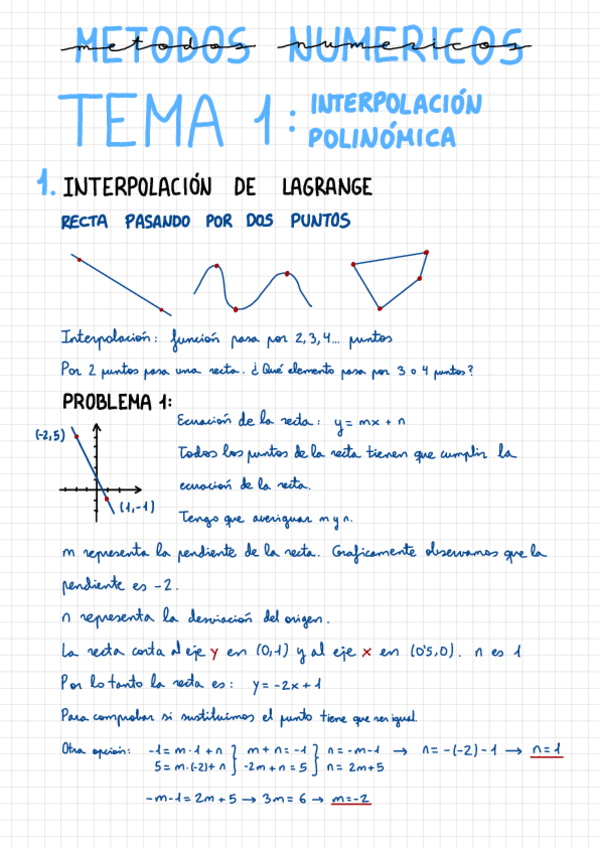 METODOS NUMERICOS
metodos numericos
TEMA 1: INTERPOLACIÓN
POLINÓMICA
1. INTERPOLACIÓN DE LAGRANGE
RECTA PASANDO POR DOS PUNTOS
Interpolación: función pasa por 2,3,4... puntos
Por 2 puntos pasa una recta. ¿Qué elemento pasa por 3 o 4 puntos?
PROBLEMA 1:
(-2,5)
(1,-1)
Ecuación de la recta: y = mx + n
Todos los puntos de la recta tienen que cumplir la
ecuación de la recta.
Tengo que averiguar m y n.
m representa la pendiente de la recta. Graficamente observamos que la
pendiente es -2.
n representa la desviación del origen.
La recta corta al eje y en (0,1) y al eje x en (0'5,0). n es 1
Por lo tanto la recta es: y = -2x + 1
Para comprobar si sustituimos el punto tiene que ser igual.
Otra opción: -1 = m·1 + n } m + n = -1 } n = -m-1 → n = -(-2)-1 → n=1
5 = m·(-2)+ n } -2m + n = 5 } n = 2m+5
-m-1 = 2m + 5 → 3m = 6 → m=-2